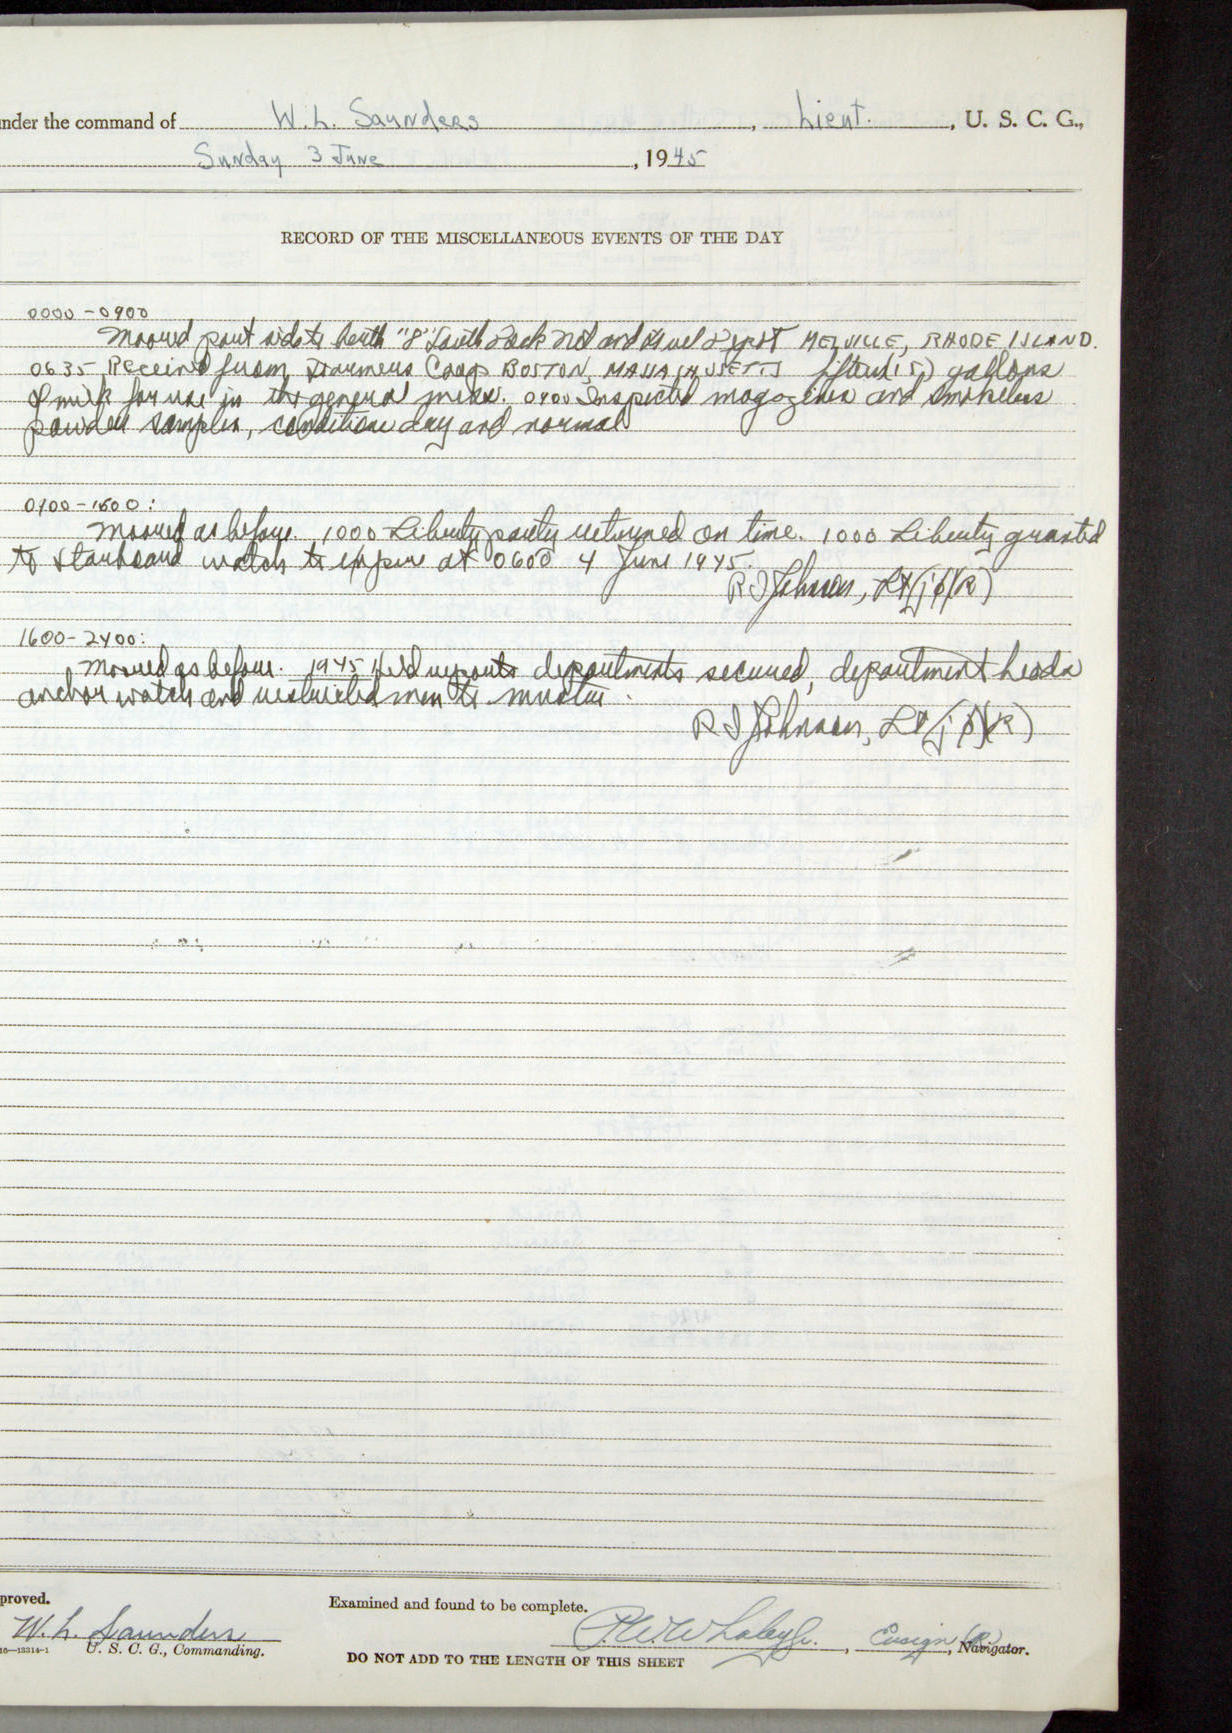 under the command of W. L. Saunders, Lieut., U. S. C. G.,
Sunday 3 June, 1945
RECORD OF THE MISCELLANEOUS EVENTS OF THE DAY
0000-0900
Moored port side to berth "8" South Dock Net and Fuel Depot MELVILLE, RHODE ISLAND.
0635 Received from Farmers Coop BOSTON, MASSACHUSETTS fifteen (15) gallons
of milk for use in the general mess. 0900 Inspected magazines and smokeless
powder samples, conditions dry and normal
0900-1600:
Moored as before. 1000 Liberty party returned on time. 1000 Liberty granted
to starboard watch to expire at 0600 4 June 1945.
R I Johnson, Lt(jg)(R)
1600-2400:
Moored as before. 1945 Held reports departments secured, department heads
anchor watch and restricted men to muster.
R I Johnson, Lt(jg)(R)
proved.
W. L. Saunders
16-13314-1 U. S. C. G., Commanding.
Examined and found to be complete.
Ensign (R), Navigator.
DO NOT ADD TO THE LENGTH OF THIS SHEET